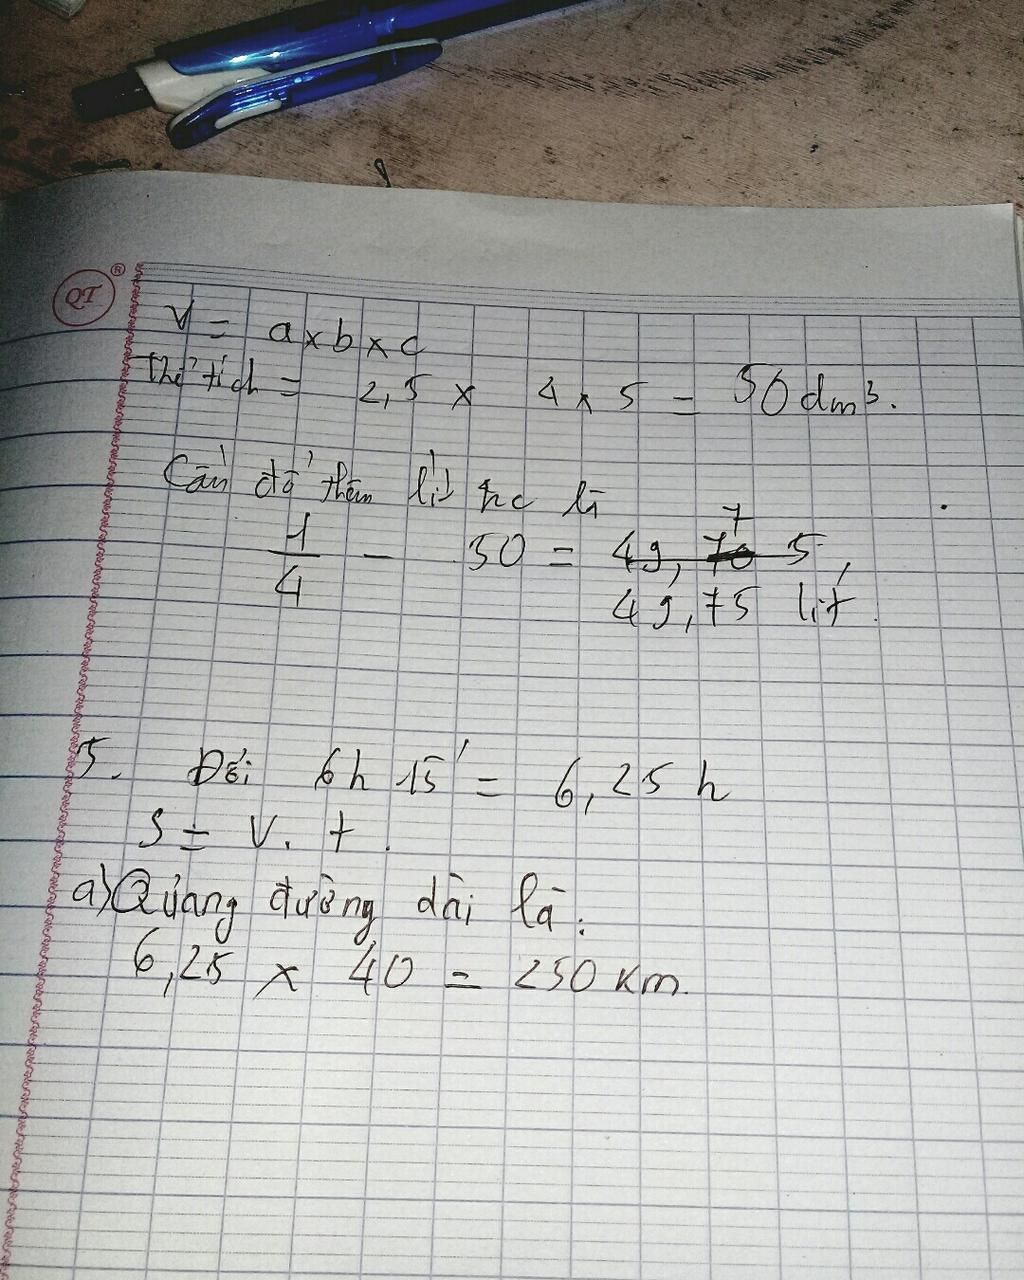 QT ®
V = a x b x c
Thể tích = 2,5 x 4 x 5 = 50 dm³.
Cần đổ thêm lít là
7
1/4 - 50 = 49, 5
49,75 lít
5. Đổi 6h 15' = 6,25 h
S = V. t.
a) Quảng đường dài là:
6,25 x 40 = 250 km.